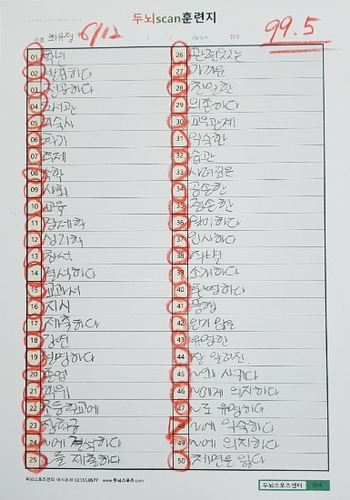 두뇌scan훈련지
6/12
99.5
01 학년
02 발표하다
03 전공하다
04 도서관
05 기숙사
06 학기
07 숙제
08 수학
09 사회
10 교육
11 경제학
12 심리학
13 참석
14 결석하다
15 교과서
16 지식
17 제출하다
18 강연
19 설명하다
20 졸업
21 학위
22 초등학교에
23 장학금
24 ~에 결석하다
25 ~을 제출하다
26 관련있는
27 가까운
28 친밀한
29 의존하다
30 교우관계
31 익숙한
32 습관
33 사려깊은
34 공손한
35 겸손한
36 악수하다
37 인사하다
38 작별
39 소개하다
40 환영하다
41 동행
42 인기 많은
43 유명한
44 잘 알려진
45 ~와 사귀다
46 ~에게 의지하다
47 ~로 유명하다
48 ~에 익숙하다
49 ~에 의지하다
50 체면을 잃다
두뇌스포츠센터 대치본원 02.555.0677 www.두뇌스포츠.com
두뇌스포츠센터